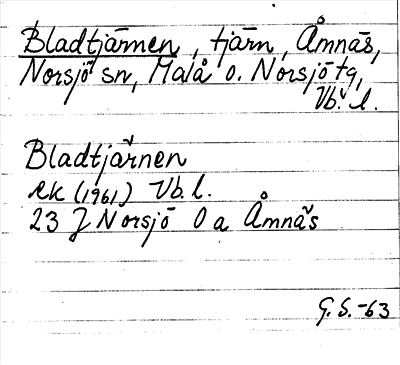 Bladtjärnen, tjärn, Åmnäs,
Norsjö sn, Malå o. Norsjö tg,
Vb. l.
Bladtjärnen
ek (1961) Vb. l.
23 J Norsjö 0 a Åmnäs
G. S. -63